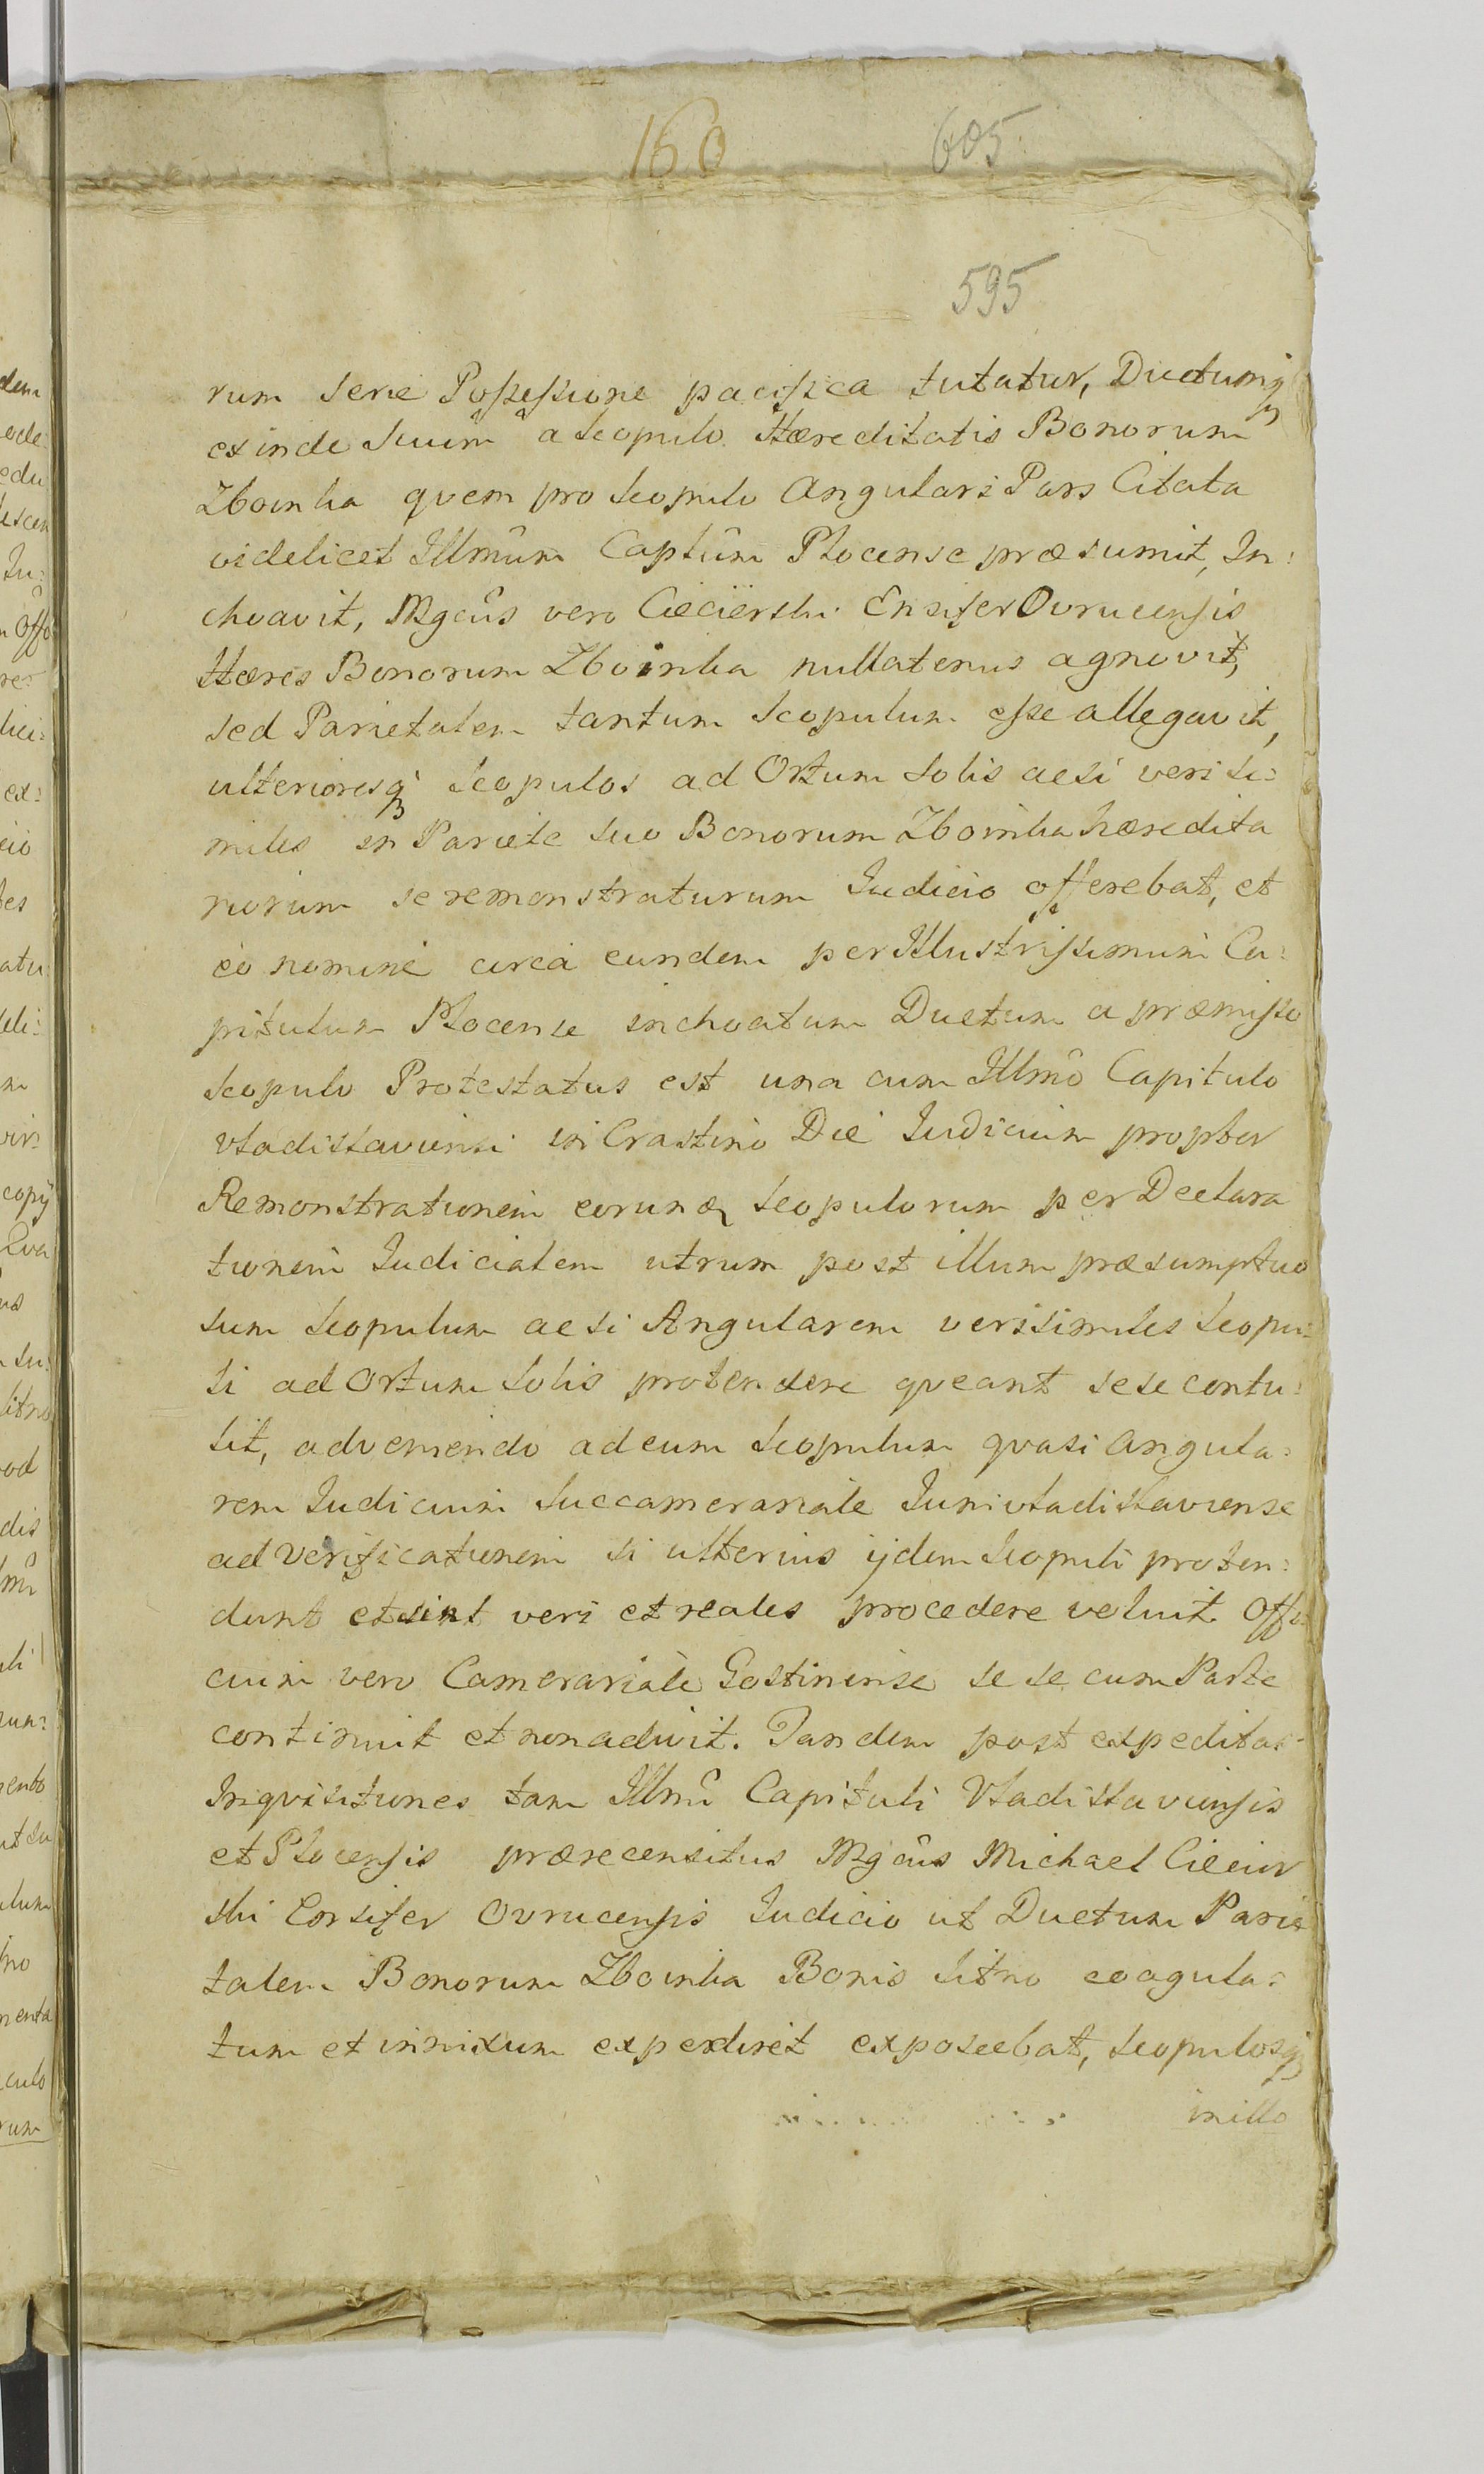 160 605.
595
rum serie Possessione pacifica tutatur, Ductumq
exinde Suum a Scopulo Hæreditatis Bonorum
Zboinka qvem pro Scopulo Angulari Pars Citata
videlicet Illmûm Captûm Plocense præsumit, In:
choavit, Mgcûs vero Ciecierski Ensifer Ovrucensis
Hæres Bonorum Zboinka nullatenus agnovit,
sed Parietalem tantum Scopulum esse allegavit,
ulterioresq Scopulos ad Ortum Solis acsi verisi:
miles in Pariete suo Bonorum Zboinka hæredita
riorum se remonstraturum Iudicio offerebat, et
eo nomine circa eundem per Illustrissimum Ca:
pitulum Plocense inchoatum Ductum a præmisso
Scopulo Protestatus est una cum Illmô Capitulo
Vladislaviensi in Crastino Die Iudicium propter
Remonstrationem eorund Scopulorum per Declara
tionem Iudicialem utrum post illum præsumptuo
sum Scopulum acsi Angularem verisimiles Scopu:
li ad Ortum Solis protendere qveant sese contu:
lit, adveniendo ad eum Scopulum qvasi angula:
rem Iudicium Succamerariale Junivladislaviense
ad Verificationem si ulterius ijdem Scopuli proten:
dunt et sint veri et reales procedere voluit. Offi:
cium vero Camerariale Gostinense se se cum Parte
continuit et non adivit. Tandem post expeditas
Inqvisitiones tam Illmî Capituli Vladislaviensis
et Plocensis præcensitus Mgcûs Michael Ciecier
ski Ensifer Ovrucensis Iudicio ut Ductum Parie
talem Bonorum Zboinka Bonis Litno coagula:
tum et innixum expediret exposcebat, Scopulosq
in illo